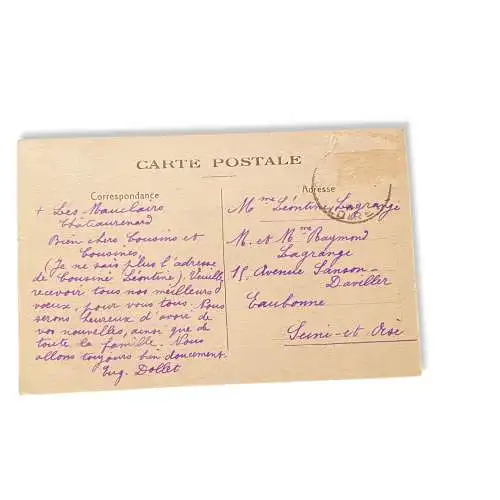 CARTE POSTALE
Correspondance
+ Les Mauclairs
Châteaurenard
Bien chers Cousins et
Cousines,
(Je ne sais plus l'adresse
de Cousine Léontine). Veuillez
recevoir tous nos meilleurs
vœux, pour vous tous. Nous
serons heureux d'avoir de
vos nouvelles, ainsi que de
toute la famille. Nous
allons toujours bien doucement.
Eug. Dollet
Adresse
Mme Léontine Lagrange
M. et Mme Raymond
Lagrange
18, Avenue Sanson-
Daviller
Eaubonne
Seine-et-Oise
LOIRET